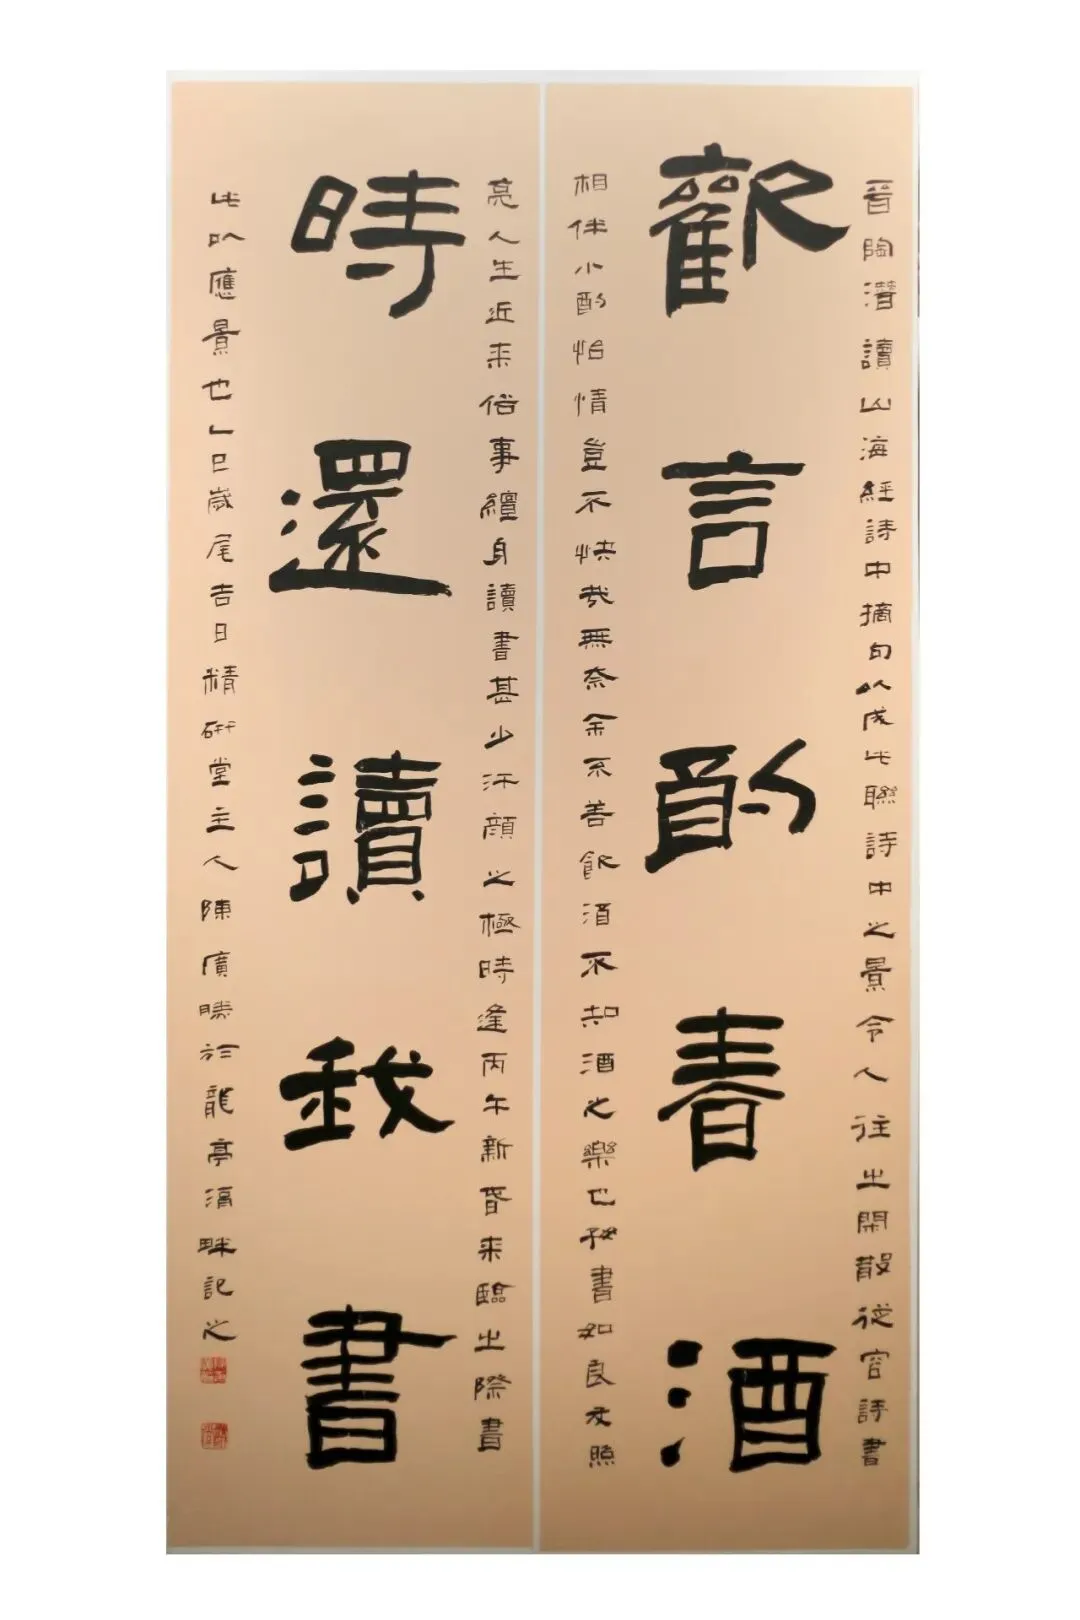 晉陶潛讀山海經詩中摘句以成此聯詩中之景令人往之閑散從容詩書
歡言酌春酒
相伴小酌怡情豈不快哉無奈余不善飲酒不知酒之樂也好書如良友照
亮人生近來俗事纏身讀書甚少汗顏之極時逢丙午新春來臨之際書
時還讀我書
此以應景也乙巳歲尾吉日精研堂主人陳廣勝於龍亭湖畔記之